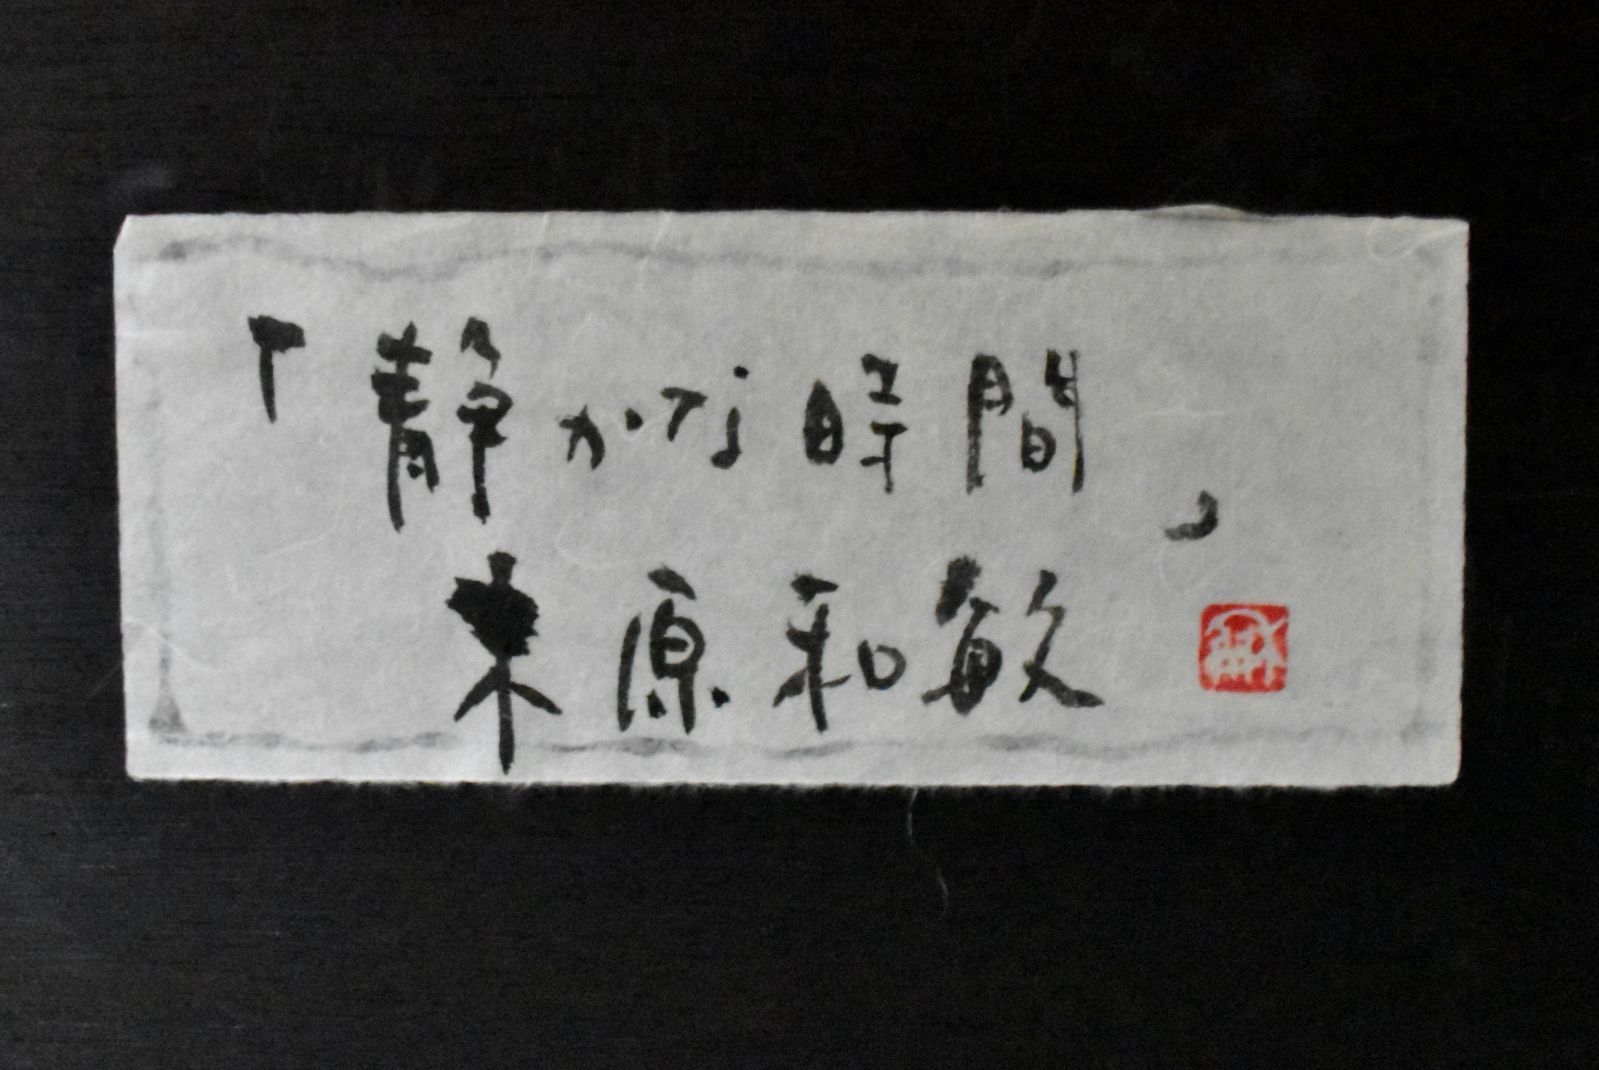 「静かな時間」
木原和敏